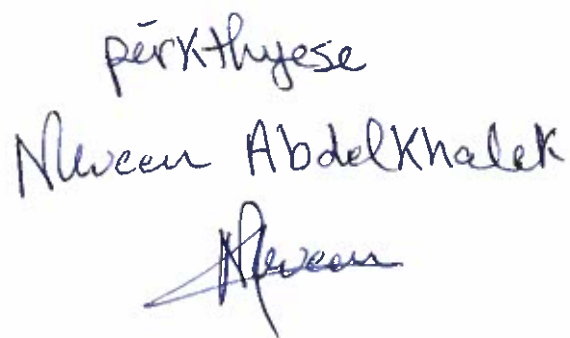 përkthyese
Niveen AbdelKhalek
Niveen